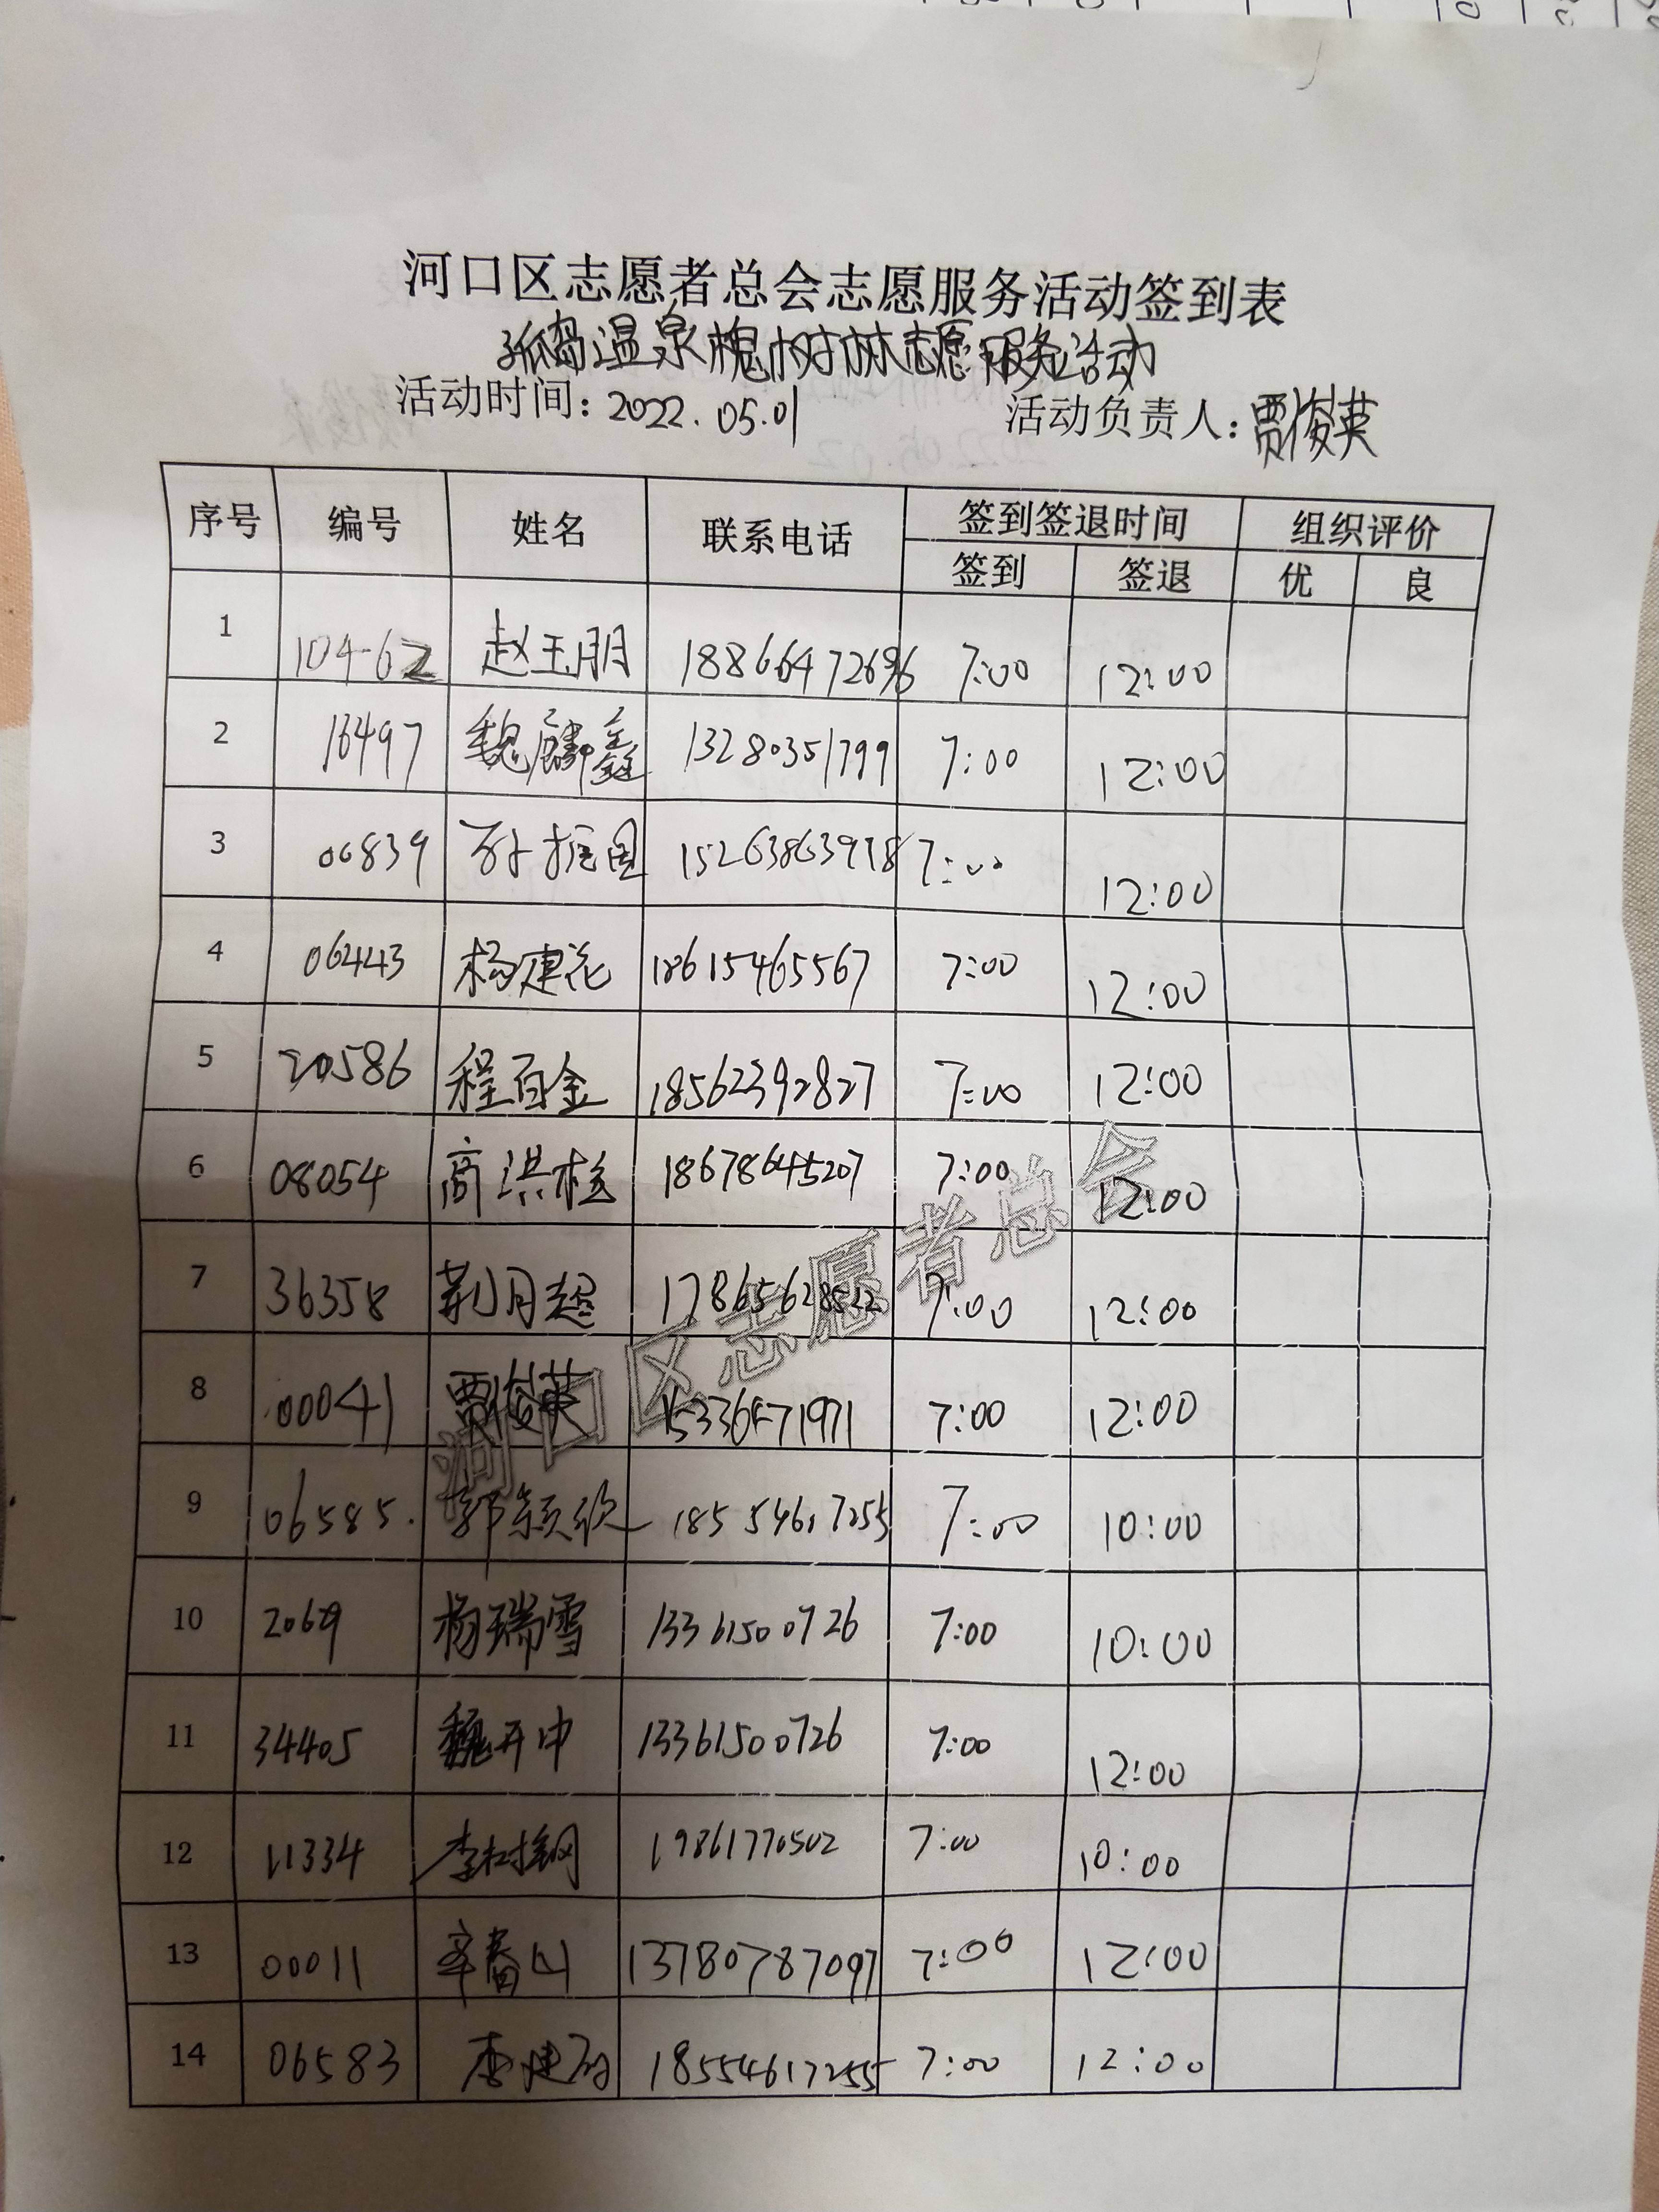 河口区志愿者总会志愿服务活动签到表
孤岛温泉槐树林志愿服务活动
活动时间：2022.05.01 活动负责人：贾俊英
序号 编号 姓名 联系电话 签到签退时间 组织评价
签到 签退 优 良
1 104-62 赵玉朋 7:00 12:00
2 16497 魏麟鑫 13280351799 7:00 12:00
3 06839 孙振国 15263863918 7:00 12:00
4 06443 杨建花 18615465567 7:00 12:00
5 20586 程百金 18562392827 7:00 12:00
6 08054 商洪 18678645207 7:00 12:00
7 36358 荆月超 17865628522 7:00 12:00
8 00041 贾俊英 15336471971 7:00 12:00
9 06585. 郭颖欣 18554617255 7:00 10:00
10 2069 杨瑞雪 13361500726 7:00 10:00
11 34405 魏开中 13361500726 7:00 12:00
12 11334 李树钢 19861770502 7:00 10:00
13 00011 辛春山 13780787097 7:00 12:00
14 06583 李建 18554617255 7:00 12:00
河口区志愿者总会